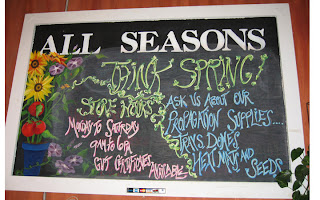 ALL SEASONS
THINK SPRING!
STORE HOURS
MONDAY TO SATURDAY
9AM TO 6PM
GIFT CERTIFICATES AVAILABLE
ASK US ABOUT OUR
PROPAGATION SUPPLIES....
TRAYS, DOMES
HEAT MATS AND SEEDS